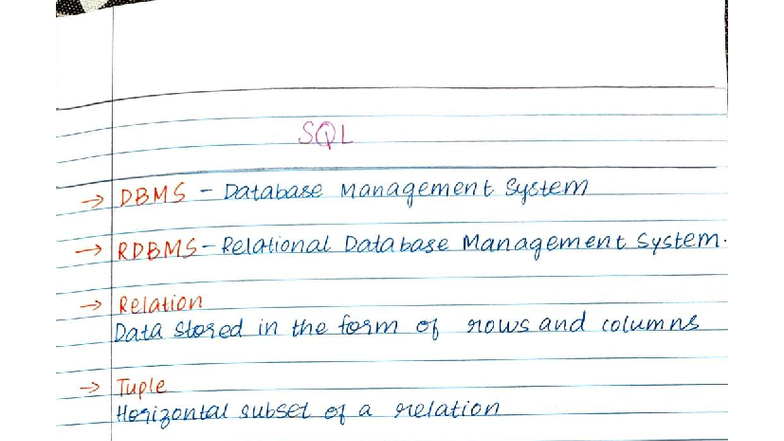 SQL
→ DBMS - Database Management System
→ RDBMS - Relational Database Management System.
→ Relation
Data stored in the form of rows and columns
→ Tuple
Horizontal subset of a relation